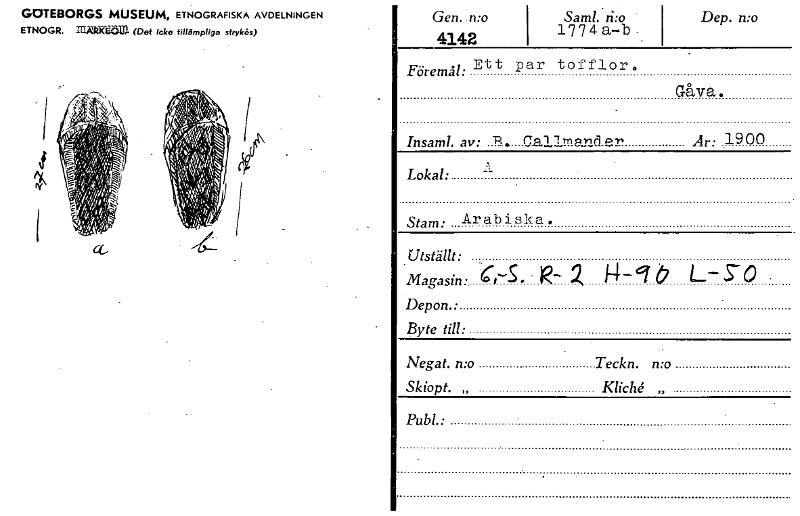 GÖTEBORGS MUSEUM, ETNOGRAFISKA AVDELNINGEN
ETNOGR. ARKEOL. (Det icke tillämpliga strykes)
27 cm
26 cm
a
b
Gen. n:o
4142
Saml. n:o
1774a-b
Dep. n:o
Föremål: Ett par tofflor.
Gåva.
Insaml. av: B. Callmander År: 1900
Lokal: A
Stam: Arabiska.
Utställt:
Magasin: G,-S. R-2 H-90 L-50
Depon.:
Byte till:
Negat. n:o Teckn. n:o
Skiopt. „ Kliché „
Publ.: